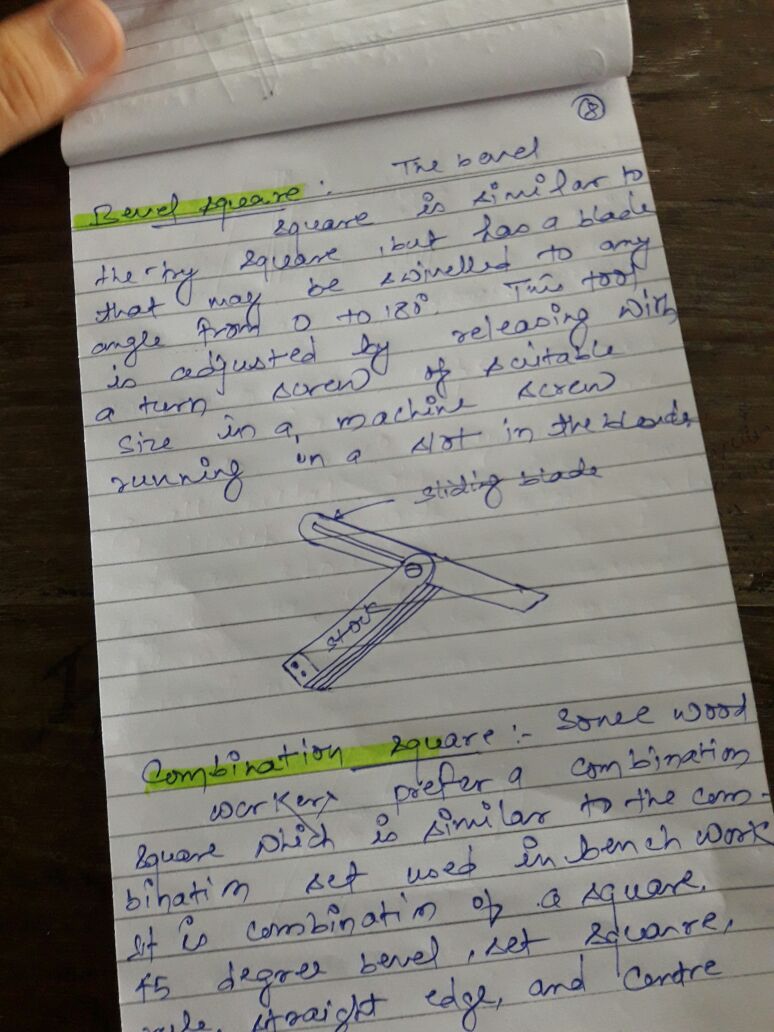 18
Bevel square :- The bevel
square is similar to
the try square, but has a blade
that may be swivelled to any
angle from 0 to 180°. This tool
is adjusted by releasing with
a turn screw of suitable
size in a machine screw
running in a slot in the
sliding blade
stock
Combination square :- Some wood
workers prefer a combination
square which is similar to the com-
bination set used in bench work
It is combination of a square,
45 degree bevel, set square,
rule, straight edge, and centre